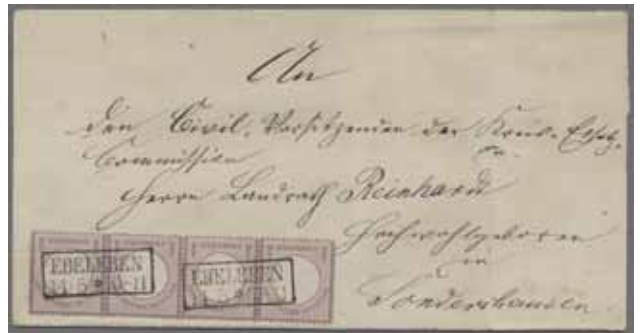 An
den Civil-Vorsitzenden der Kreis-Ersatz-
Commission
Herrn Landrath Reinhardt
Hochwohlgeboren
in
Sondershausen
EBELEBEN
EBELEBEN